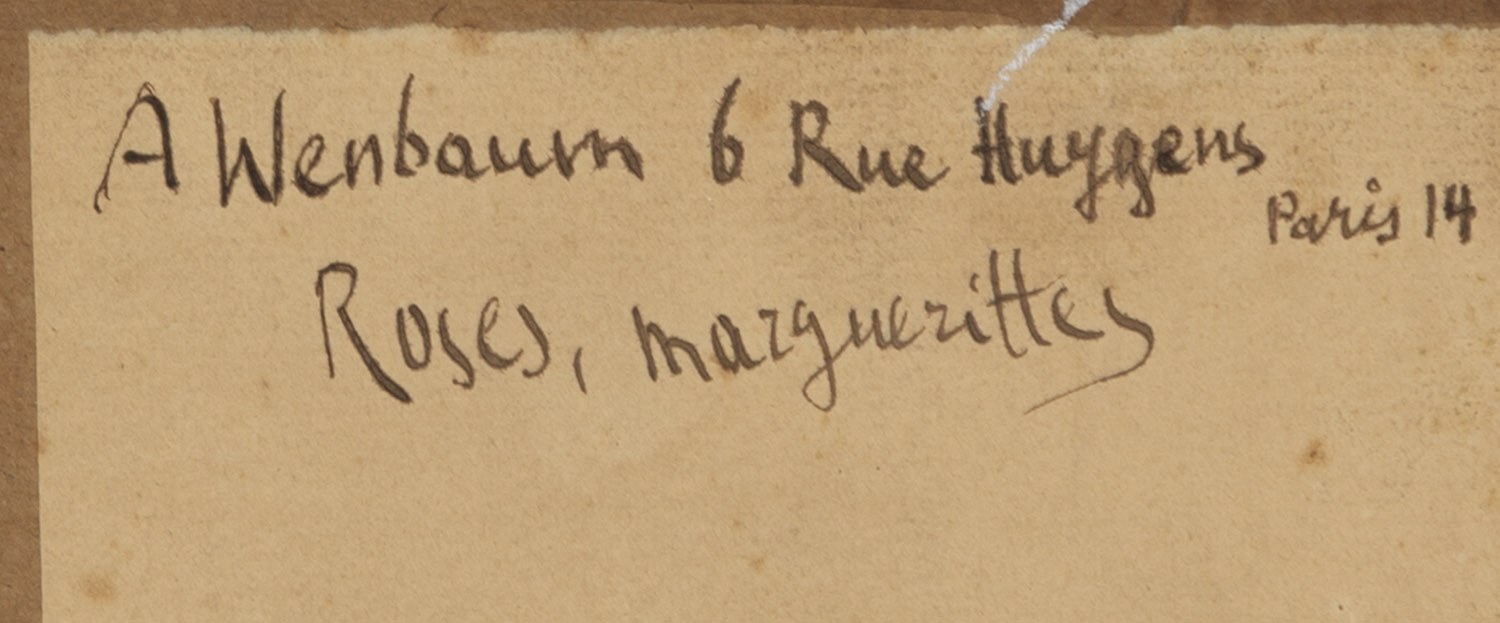 A Wenbaum 6 Rue Huygens
Paris 14
Roses, marguerittes